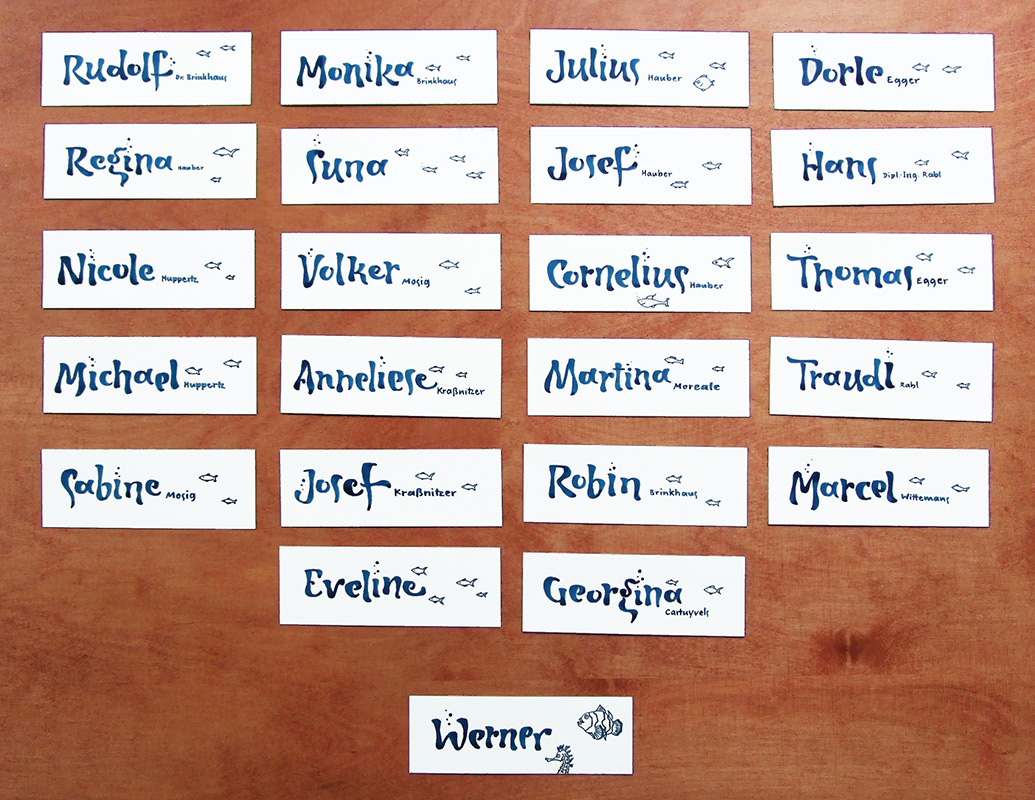 Rudolf Dr. Brinkhaus
Monika Brinkhaus
Julius Hauber
Dorle Egger
Regina Hauber
Suna
Josef Hauber
Hans Dipl.-Ing. Rabl
Nicole Huppertz
Volker Mosig
Cornelius Hauber
Thomas Egger
Michael Huppertz
Anneliese Kraßnitzer
Martina Moreale
Traudi Rabl
Sabine Mosig
Josef Kraßnitzer
Robin Brinkhaus
Marcel Wittemans
Eveline
Georgina
Cartuyvels
Werner